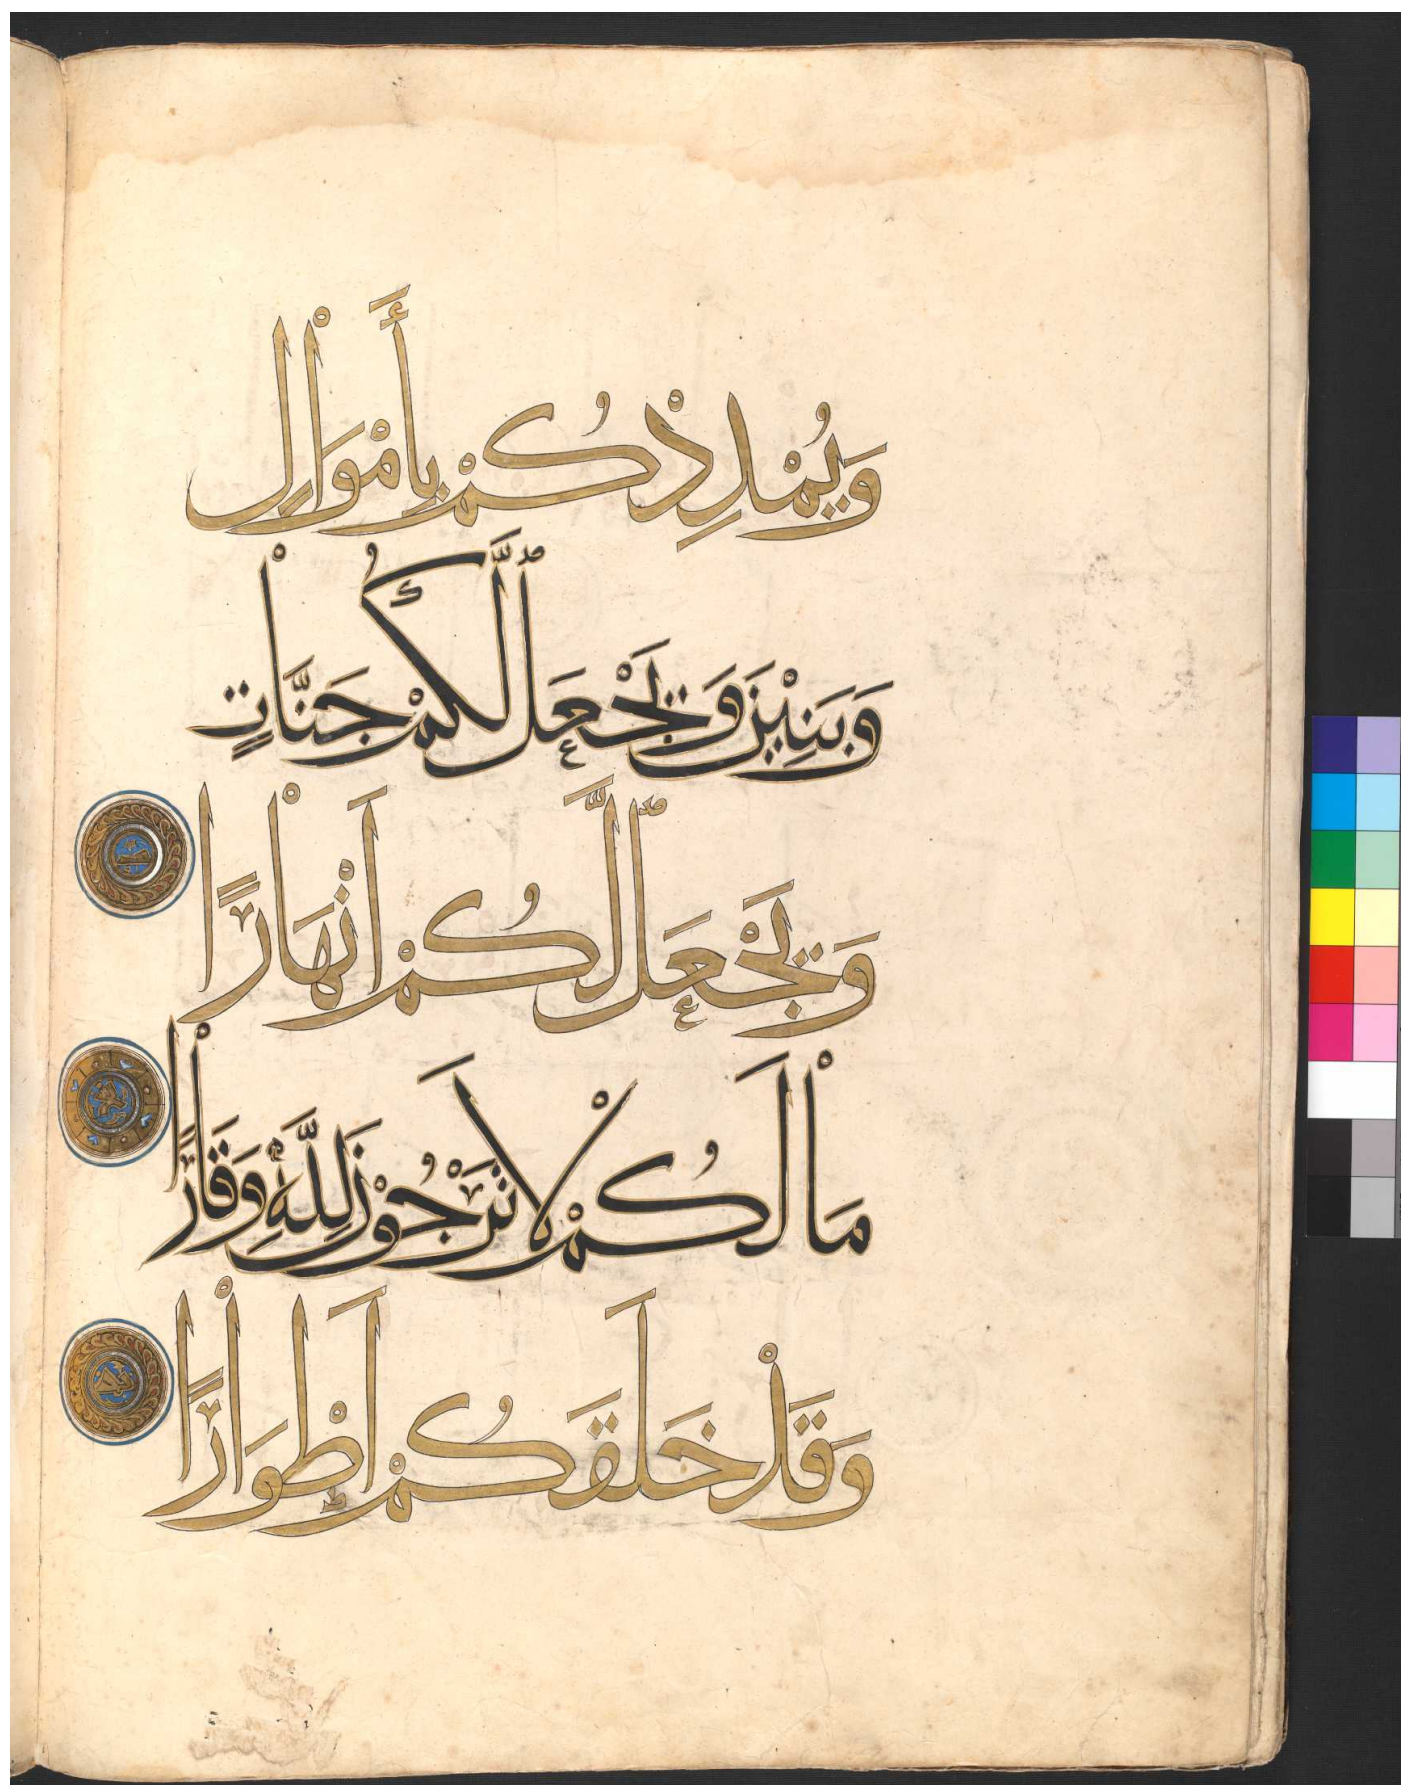 وَيُمْدِدْكُمْ بِأَمْوَاْلٍ
وَبَنِيْنَ وَيَجْعَل لَّكُمْ جَنَّاتٍ
وَيَجْعَل لَّكُمْ اَنْهَاْرًا
مَاْلَكُمْ لَاْ تَرْجُوْنَ لِلَّهِ وَقَاْرًا
وَقَدْ خَلَقَكُمْ اَطْوَاْرًا